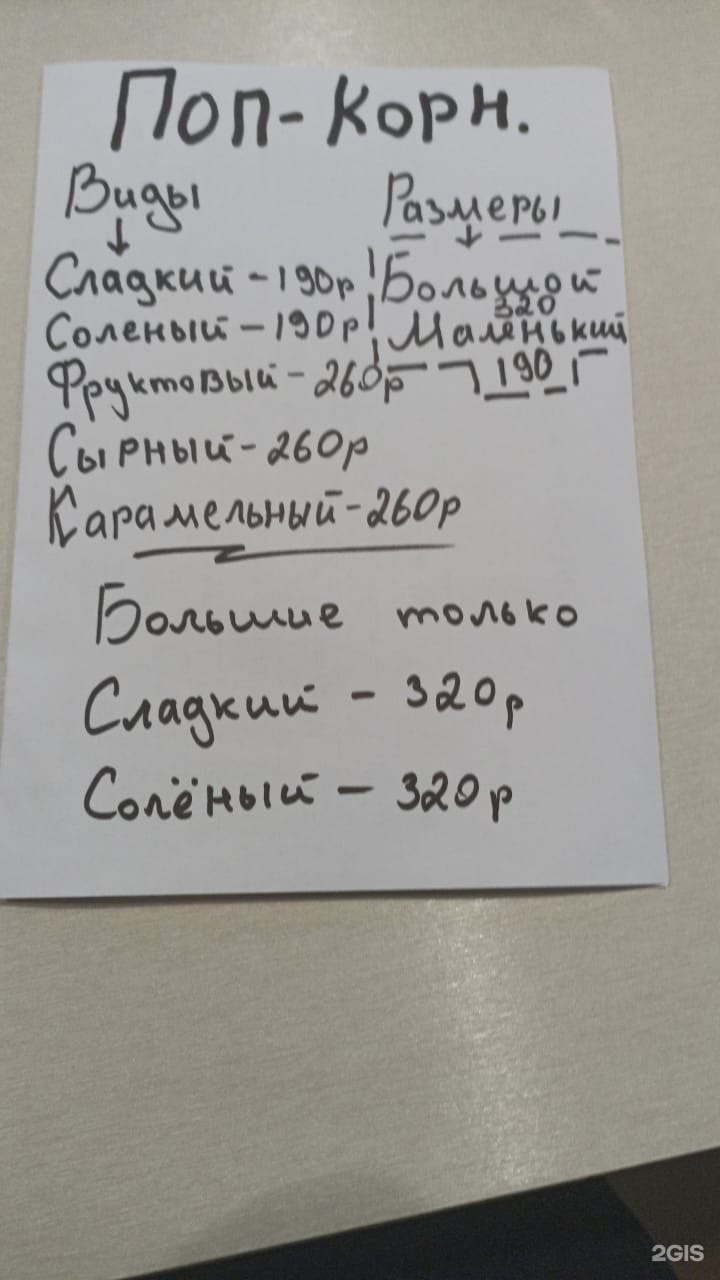 Поп-Корн.
Виды
Размеры
Сладкий - 190р
Большой
320
Соленый - 190р
Маленький
190
Фруктовый - 260р
Сырный - 260р
Карамельный - 260р
Большие только
Сладкий - 320р
Солёный - 320р
2GIS